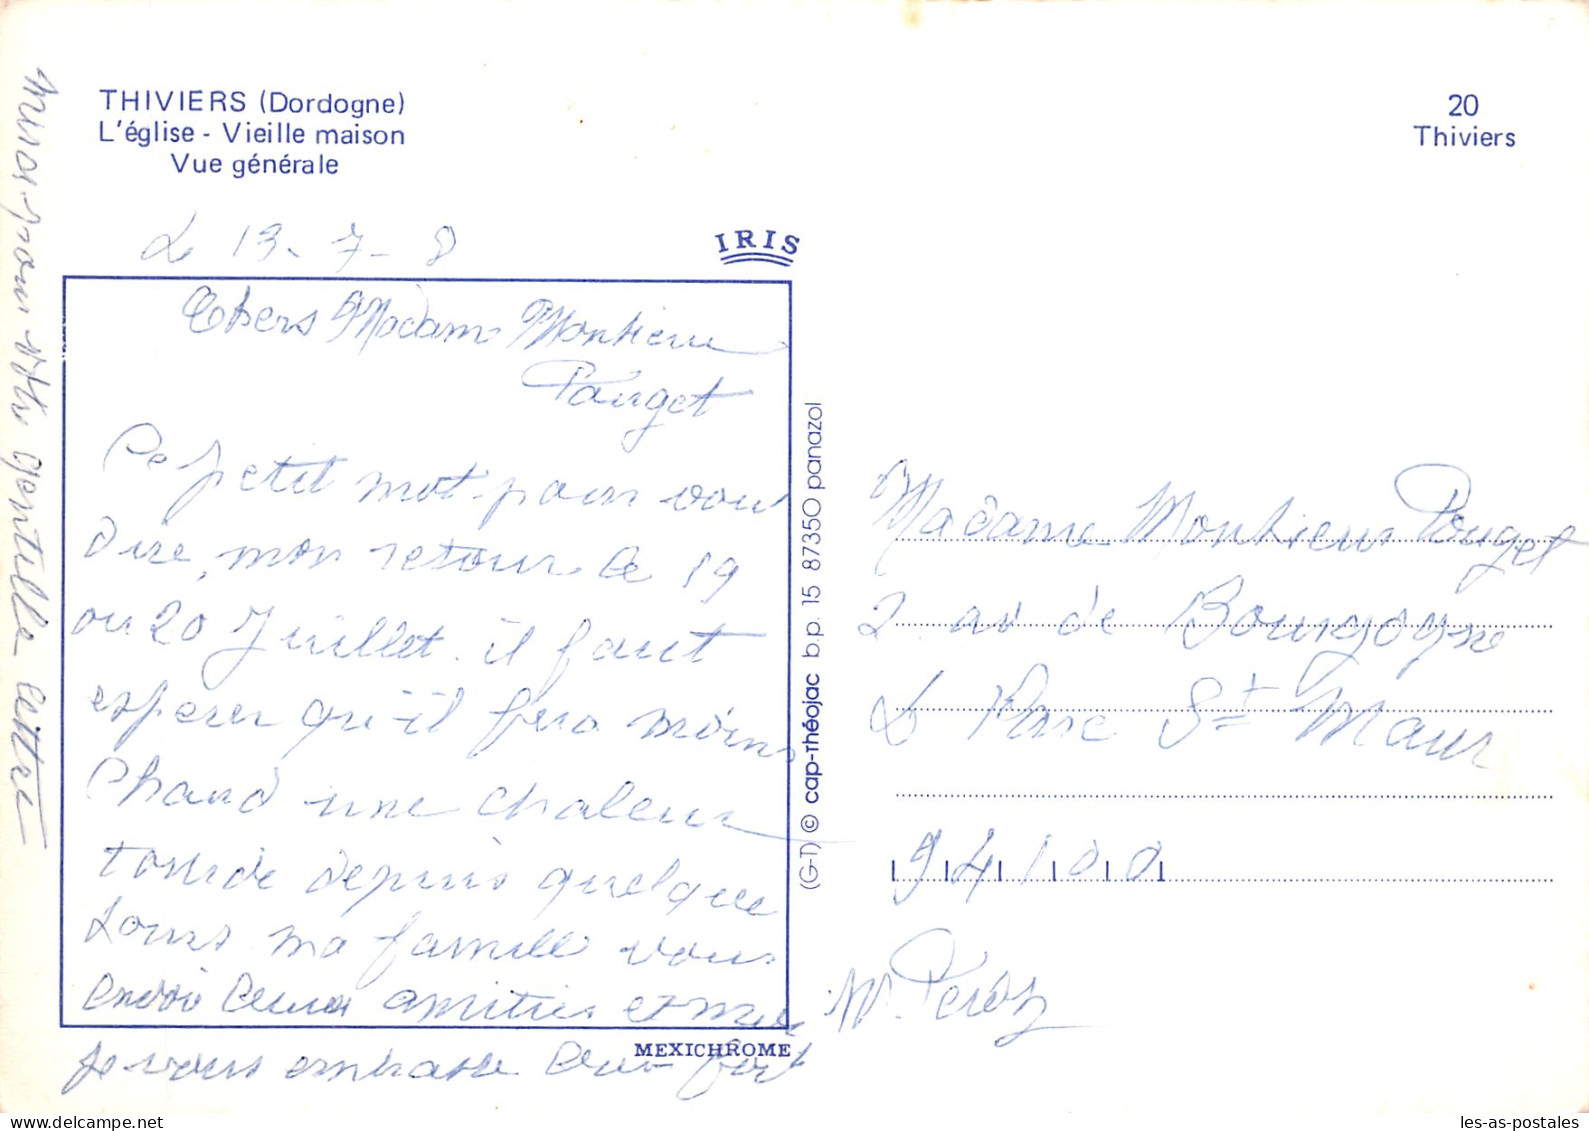 THIVIERS (Dordogne)
L'église - Vieille maison
Vue générale
20
Thiviers
IRIS
Le 13 - 7 - 8
Chers Madame Monsieur
Pouget
Ce petit mot pour vous
dire, mon retour le 19
ou 20 Juillet. il faut
esperer qu'il fera moins
chaud une chaleur
lourde depuis quelque
Jours ma famille vous
envoi leurs amitiés et moi
je vous embrasse bien fort
Merci pour votre gentille lettre
M. Peroz
(G-T) © cap-théojac b.p. 15 87350 panazol
MEXICHROME
Madame Monsieur Pouget
2 av de Bourgogne
Le Parc St Maur
94100
les-as-postales